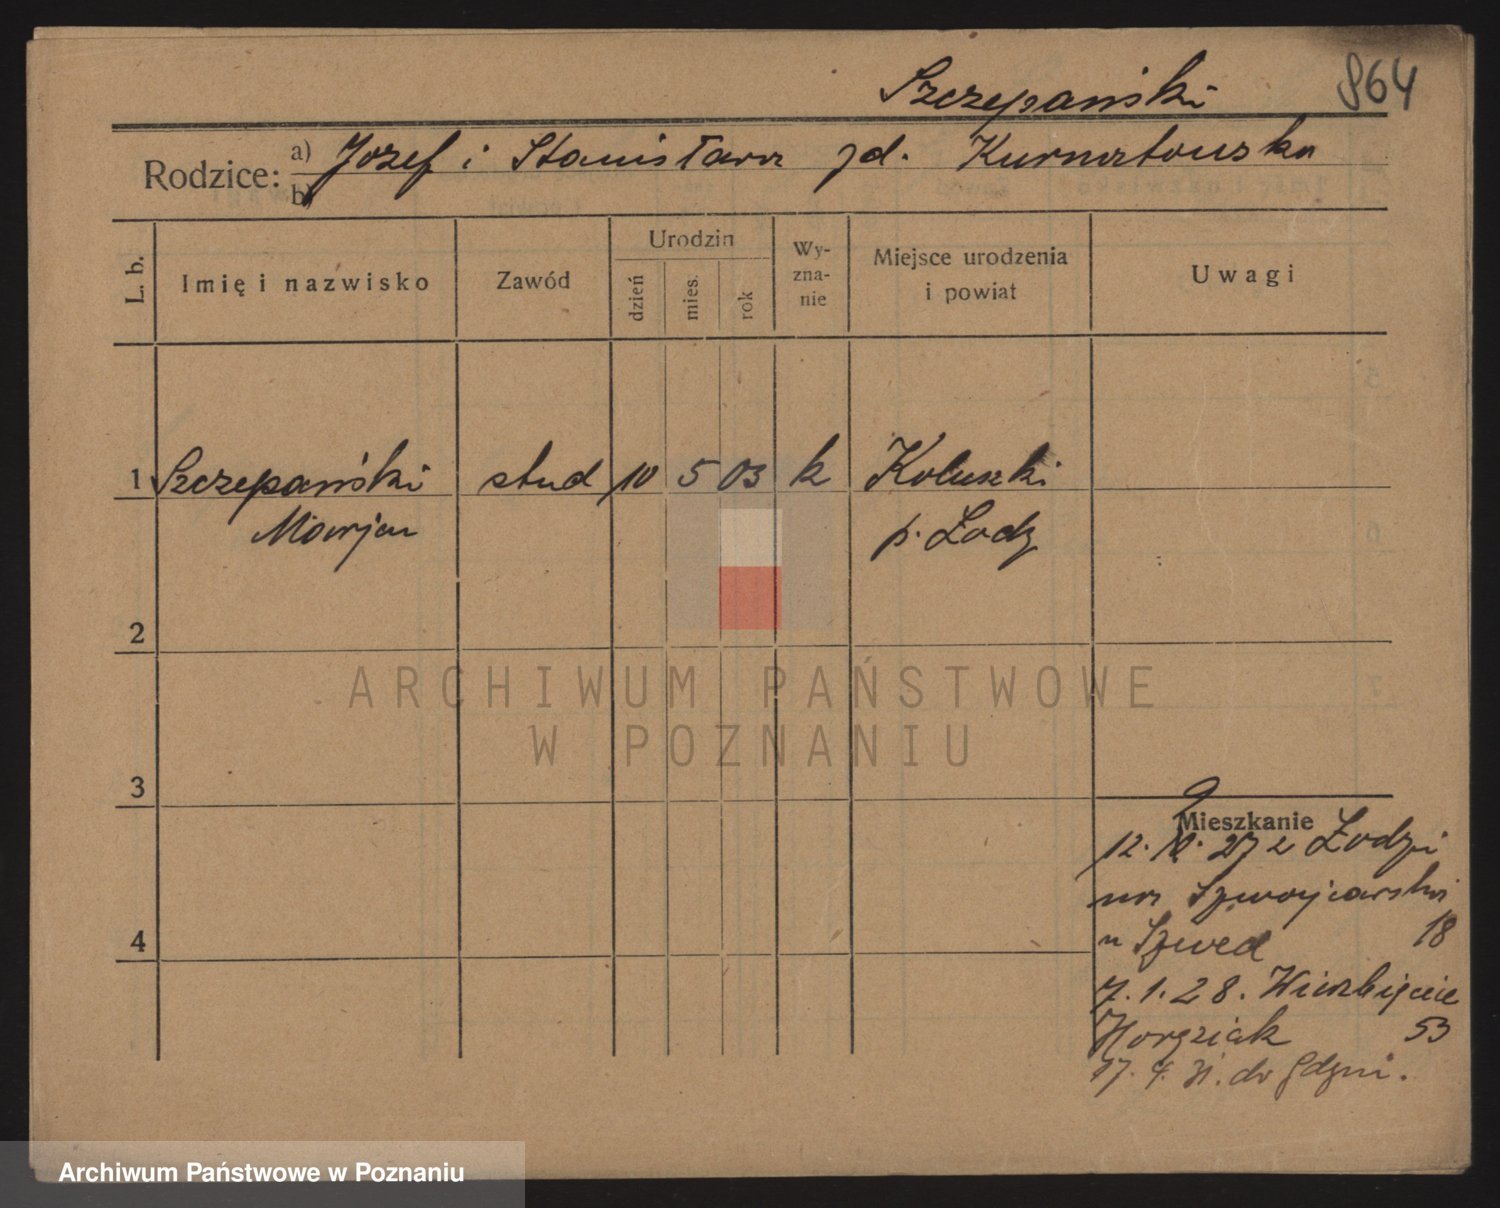 Szczepański 864
Rodzice: a) Józef i Stanisława zd. Kurnatowska
b)
L. b. Imię i nazwisko Zawód Urodzin dzień mies. rok Wy-zna-nie Miejsce urodzenia i powiat Uwagi
1 Szczepański stud 10 5 03 k Koluszki
Marjan p. Łodz
2
ARCHIWUM PAŃSTWOWE
W POZNANIU
3
Mieszkanie
12. 27 z Łodzi
na Szwajcarska
u Szwed 18
7. 1. 28. Wierzbięcie
53
17. 4. 31. do Gdyni.
4
Archiwum Państwowe w Poznaniu